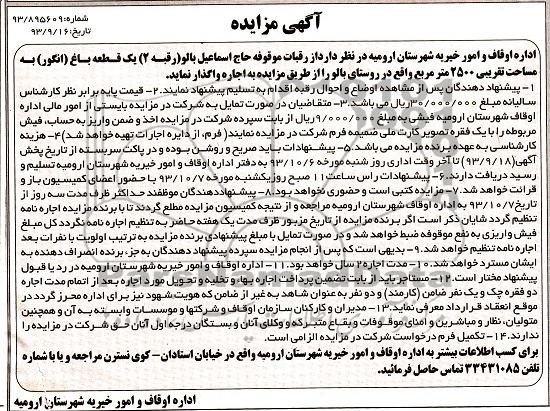 آگهی مزایده
شماره:۹۳/۸۹۵۶۰۹
تاریخ:۹۳/۹/۱۶
اداره اوقاف و امور خیریه شهرستان ارومیه در نظر دارد از رقبات موقوفه حاج اسماعیل بالو (رقبه ۲) یک قطعه باغ (انگور) به
مساحت تقریبی ۲۵۰۰ متر مربع واقع در روستای بالو را از طریق مزایده به اجاره واگذار نماید.
۱- پیشنهاد دهندگان پس از مشاهده اوضاع و احوال رقبه اقدام به تسلیم پیشنهاد نمایند.۲- قیمت پایه برابر نظر کارشناس
سالیانه مبلغ ۳۰/۰۰۰/۰۰۰ریال می باشد.۳- متقاضیان در صورت تمایل به شرکت در مزایده بایستی از امور مالی اداره
اوقاف شهرستان ارومیه فیشی به مبلغ ۹/۰۰۰/۰۰۰ ریال از بابت سپرده شرکت در مزایده اخذ و ضمن واریز به حساب، فیش
مربوطه را با یک فقره تصویر کارت ملی ضمیمه فرم شرکت در مزایده نمایند( فرم، از دایره اجارات تهیه خواهد شد)۴- هزینه
کارشناسی به عهده برنده مزایده می باشد.۵- پیشنهادات باید صریح و روشن بوده و در پاکت سربسته از تاریخ پخش
آگهی(۹۳/۹/۱۸) تا آخر وقت اداری روز شنبه مورخه ۹۳/۱۰/۶ به دفتر اداره اوقاف و امور خیریه شهرستان ارومیه تسلیم و
رسید دریافت دارند.۶- پیشنهادات راس ساعت ۱۱ صبح روز یکشنبه مورخه ۹۳/۱۰/۷ با حضور اعضای کمیسیون باز و
قرائت خواهد شد.۷- مزایده کتبی است و حضوری نخواهد بود.۸- پیشنهاد دهندگان موظفند حداکثر ظرف مدت سه روز از
تاریخ ۹۳/۱۰/۷ به اداره اوقاف شهرستان ارومیه مراجعه و از نتیجه کمیسیون مزایده مطلع گردند تا با برنده مزایده اجاره نامه
تنظیم گردد شایان ذکر است اگر برنده مزایده از تاریخ مزبور ظرف مدت یک هفته حاضر به تنظیم اجاره نامه نگردد کل مبلغ
فیش واریزی به نفع موقوفه ضبط خواهد شد و در صورت تمایل با مبلغ پیشنهادی برنده مزایده به ترتیب اولویت با نفرات بعد
اجاره نامه تنظیم خواهد شد.۹- بدیهی است که پس از انجام مزایده سپرده پیشنهاد دهندگان به جز، برنده انصراف دهنده به
ایشان مسترد خواهد شد.۱۰- مدت اجاره ۲ سال خواهد بود.۱۱- اداره اوقاف و امور خیریه شهرستان ارومیه در رد یا قبول
پیشنهاد مختار است.۱۲- مستاجر باید از بابت تضمین پرداخت اجاره بها، و تخلیه و تحویل مورد اجاره بعد از اتمام مدت اجاره
دو فقره چک و یک نفر ضامن (کارمند) و دو نفر به عنوان شاهد به غیر از ضامن که هویت شهود نیز برای اداره محرز گردد در
موقع انعقاد قرارداد معرفی نماید.۱۳- مدیران و کارکنان سازمان اوقاف و شرکتها و موسسات وابسته به آن و همچنین
متولیان، نظار و مباشرین و امنای موقوفات و بقاع متبرکه و وکلای آنان و بستگان درجه اول آنان حق شرکت در مزایده را
ندارند.۱۴- تکمیل فرم درخواست شرکت در مزایده الزامی است.
برای کسب اطلاعات بیشتر به اداره اوقاف و امور خیریه شهرستان ارومیه واقع در خیابان استادان- کوی نسترن مراجعه و یا با شماره
تلفن ۳۳۴۳۱۰۸۵ تماس حاصل فرمائید.
اداره اوقاف و امور خیریه شهرستان ارومیه